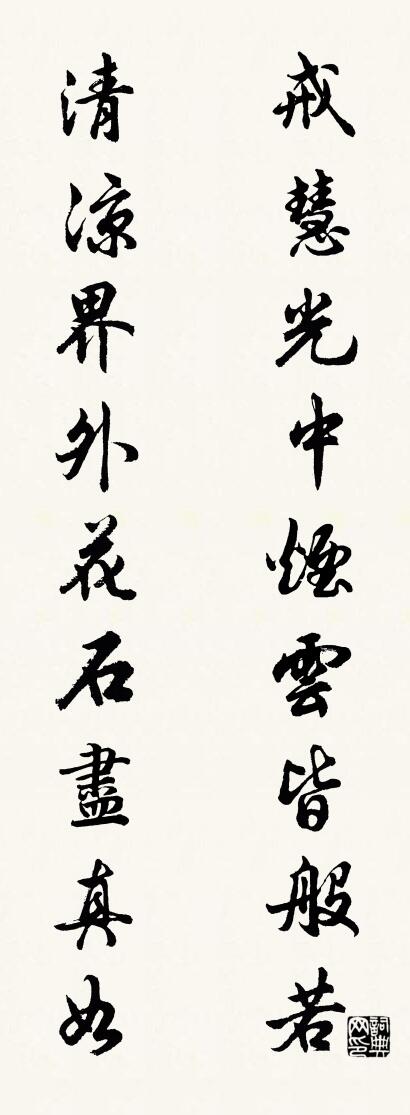 戒慧光中煙雲皆般若
清涼界外花石盡真如
詞典網印